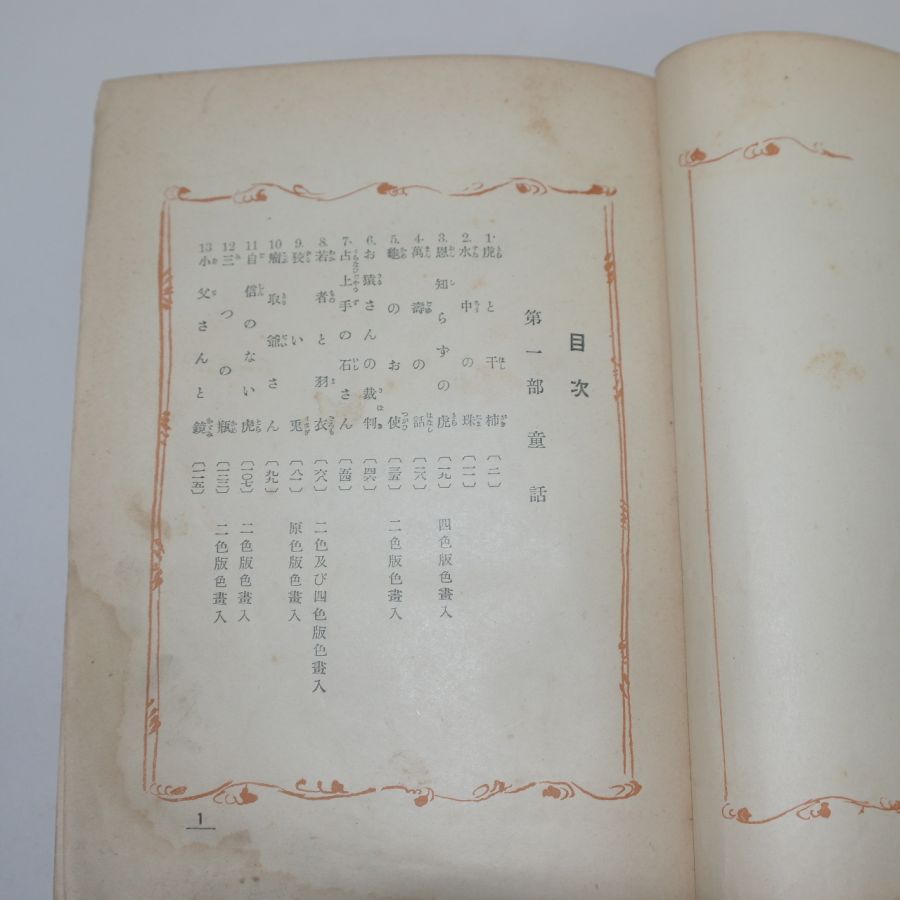 目次
第一部 童話
1. 虎と干柿 〔二〕
2. 水中の珠 〔一一〕
3. 恩知らずの虎 〔一九〕 四色版色畫入
4. 萬壽の話 〔二八〕
5. 龜のお使 〔三五〕 二色版色畫入
6. お猿さんの裁判 〔四六〕
7. 占上手の石さん 〔五四〕
8. 若者と羽衣 〔六八〕 二色及び四色版色畫入
9. 狡い兎 〔八一〕 原色版色畫入
10 瘤取爺さん 〔九九〕
11 自信のない虎 〔一〇七〕 二色版色畫入
12 三つの瓶 〔一三三〕 二色版色畫入
13 小父さんと鏡 〔一一五〕
1